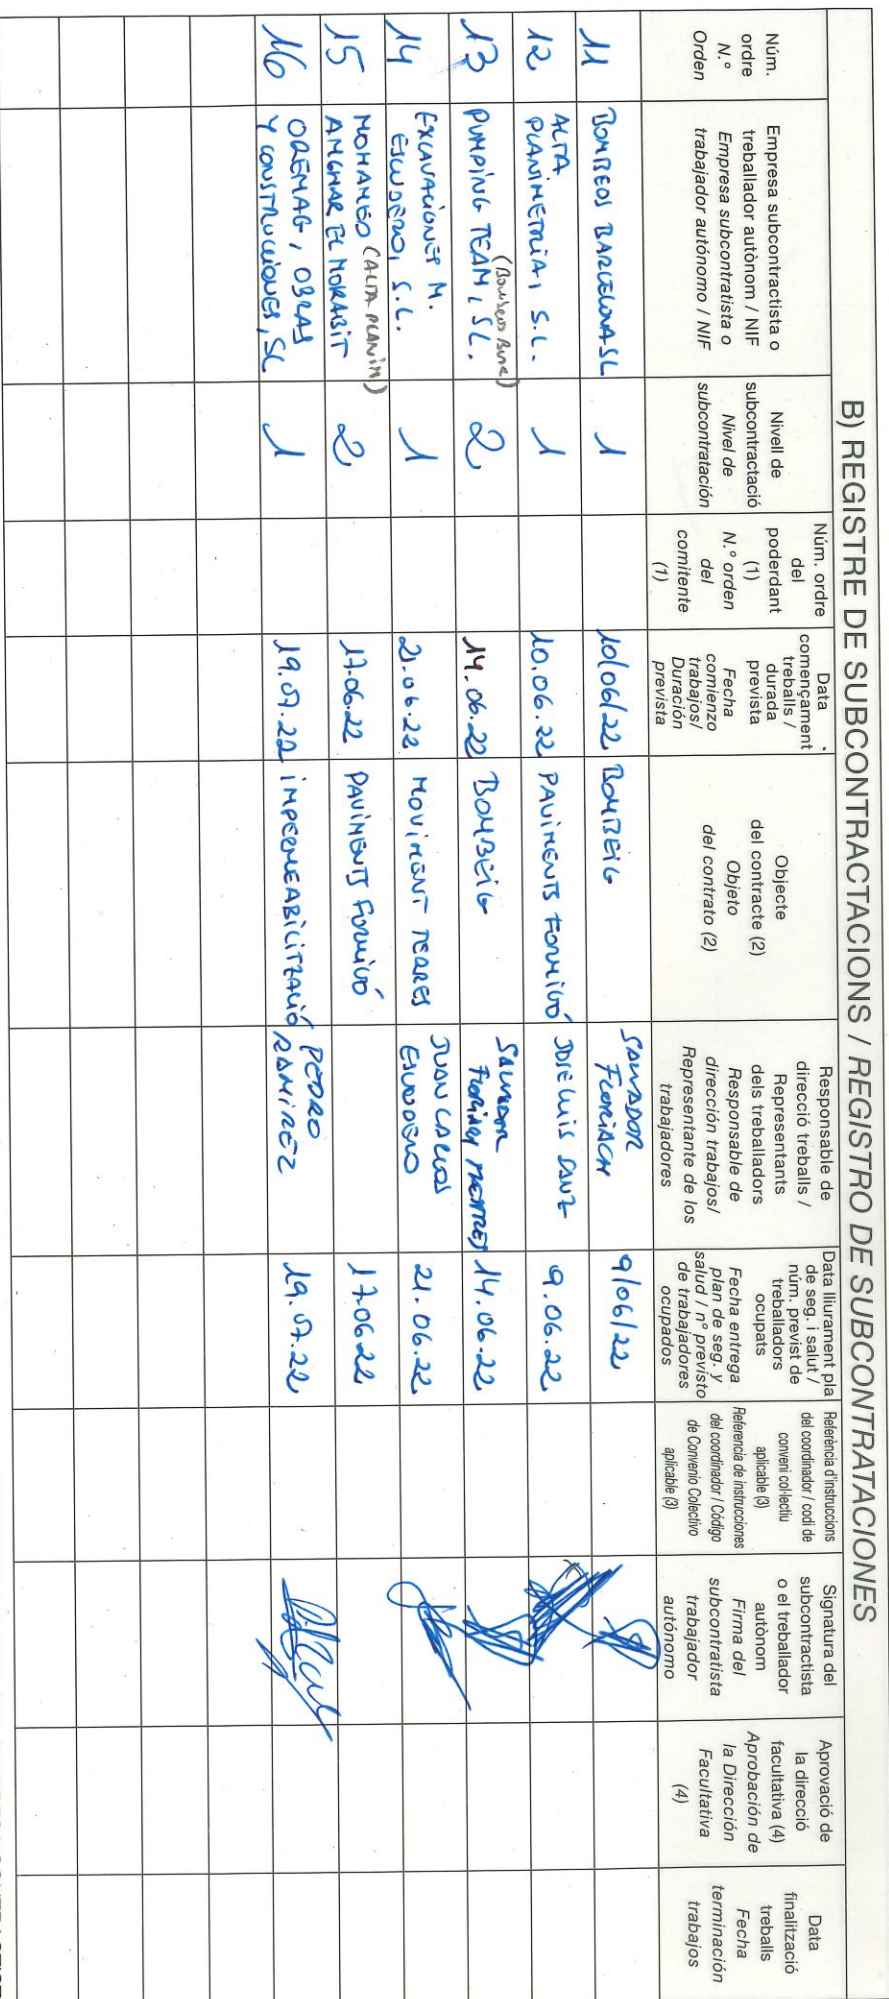 B) REGISTRE DE SUBCONTRACTACIONS / REGISTRO DE SUBCONTRATACIONES
Núm.
ordre
N.º
Orden
Empresa subcontractista o
treballador autònom / NIF
Empresa subcontratista o
trabajador autónomo / NIF
Nivell de
subcontractació
Nivel de
subcontratación
Núm. ordre
del
poderdant
(1)
N.º orden
del
comitente
(1)
Data
començament
treballs /
durada
prevista
Fecha
comienzo
trabajos/
Duración
prevista
Objecte
del contracte (2)
Objeto
del contrato (2)
Responsable de
direcció treballs /
Representants
dels treballadors
Responsable de
dirección trabajos/
Representante de los
trabajadores
Data lliurament pla
de seg. i salut /
núm. previst de
treballadors
ocupats
Fecha entrega
plan de seg. y
salud / nº previsto
de trabajadores
ocupados
Referència d'instruccions
del coordinador / codi de
conveni col·lectiu
aplicable (3)
Referencia de instrucciones
del coordinador / Código
de Convenio Colectivo
aplicable (3)
Signatura del
subcontractista
o el treballador
autònom
Firma del
subcontratista
trabajador
autónomo
Aprovació de
la direcció
facultativa (4)
Aprobación de
la Dirección
Facultativa
(4)
Data
finalització
treballs
Fecha
terminación
trabajos
11
BOMBEOS BARCELONA SL
1
10/06/22
BOMBEIG
SALVADOR
FLORIACH
9/06/22
12
ALTA
PLANIMETRIA, S.L.
1
10.06.22
PAVIMENTS FORMIGÓ
JOSE LUIS SANZ
9.06.22
13
PUMPING TEAM, SL.
2
14.06.22
BOMBEIG
SALVADOR
FLORIACH
14.06.22
14
EXCAVACIONES M.
ESCUDERO, S.L.
1
21.06.22
MOVIMENT TERRES
JUAN CARLOS
ESCUDERO
21.06.22
15
MOHAMED (ALTA PLANIM)
AMGHAR EL MORABIT
2
17.06.22
PAVIMENTS FORMIGÓ
17.06.22
16
OREMAG, OBRAS
Y CONSTRUCCIONES, SL
1
19.07.22
IMPERMEABILITZACIÓ
PEDRO
RAMIREZ
19.07.22